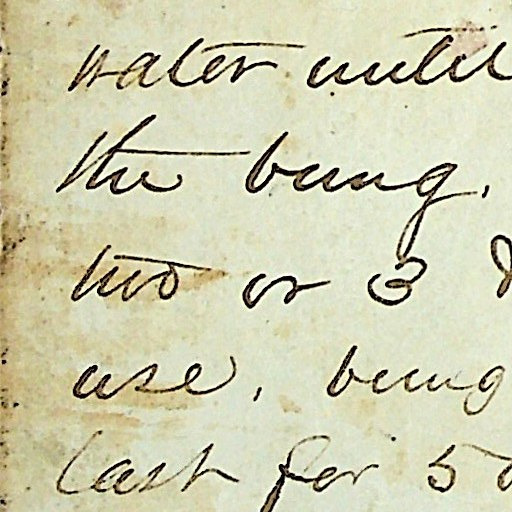 water until
the bung.
two or 3
use, bung
last for 5